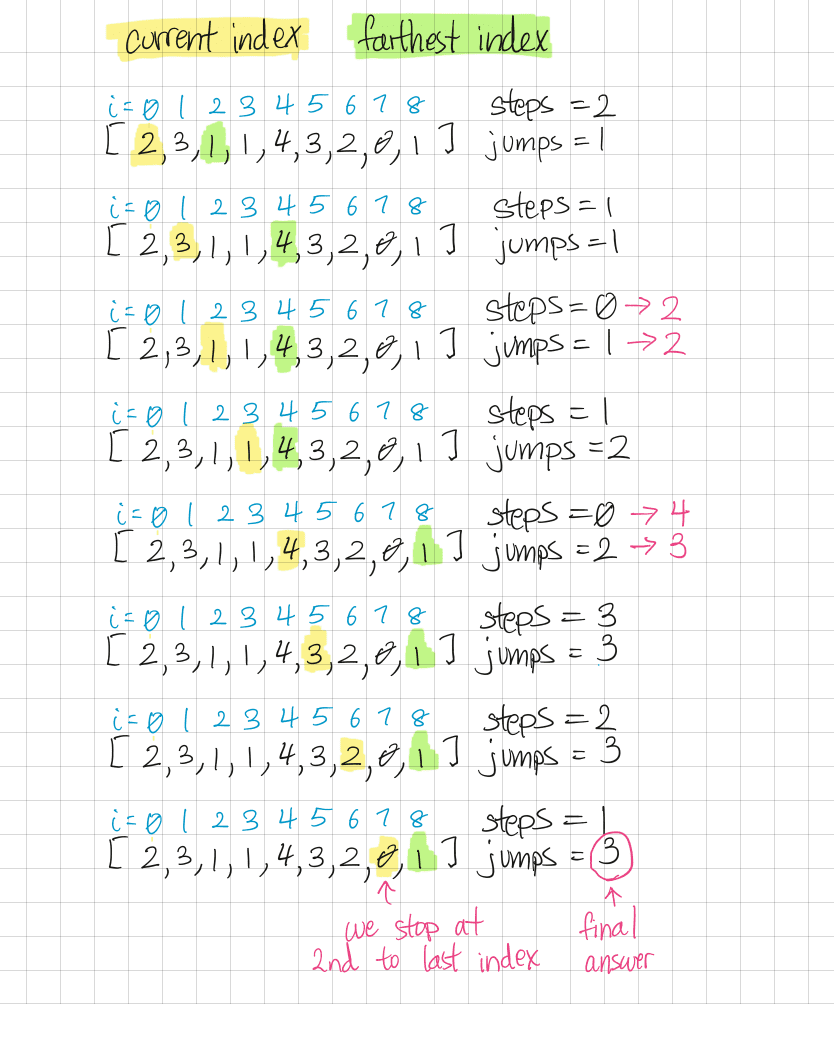 current index farthest index
i= 0 1 2 3 4 5 6 7 8 steps = 2
[ 2, 3, 1, 1, 4, 3, 2, 0, 1 ] jumps = 1
i= 0 1 2 3 4 5 6 7 8 steps = 1
[ 2, 3, 1, 1, 4, 3, 2, 0, 1 ] jumps = 1
i= 0 1 2 3 4 5 6 7 8 steps = 0 → 2
[ 2, 3, 1, 1, 4, 3, 2, 0, 1 ] jumps = 1 → 2
i= 0 1 2 3 4 5 6 7 8 steps = 1
[ 2, 3, 1, 1, 4, 3, 2, 0, 1 ] jumps = 2
i= 0 1 2 3 4 5 6 7 8 steps = 0 → 4
[ 2, 3, 1, 1, 4, 3, 2, 0, 1 ] jumps = 2 → 3
i= 0 1 2 3 4 5 6 7 8 steps = 3
[ 2, 3, 1, 1, 4, 3, 2, 0, 1 ] jumps = 3
i= 0 1 2 3 4 5 6 7 8 steps = 2
[ 2, 3, 1, 1, 4, 3, 2, 0, 1 ] jumps = 3
i= 0 1 2 3 4 5 6 7 8 steps = 1
[ 2, 3, 1, 1, 4, 3, 2, 0, 1 ] jumps = 3
↑ ↑
we stop at final
2nd to last index answer